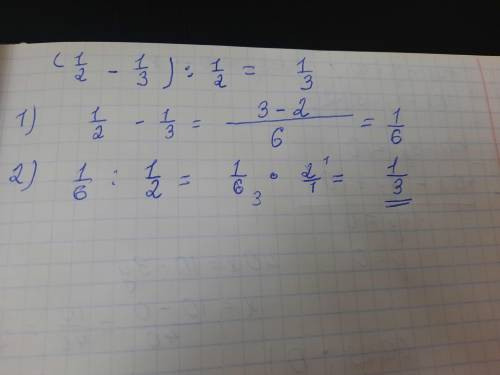 (1/2 - 1/3) : 1/2 = 1/3
1) 1/2 - 1/3 = (3 - 2)/6 = 1/6
2) 1/6 : 1/2 = 1/6 3 · 2/1 1 = 1/3